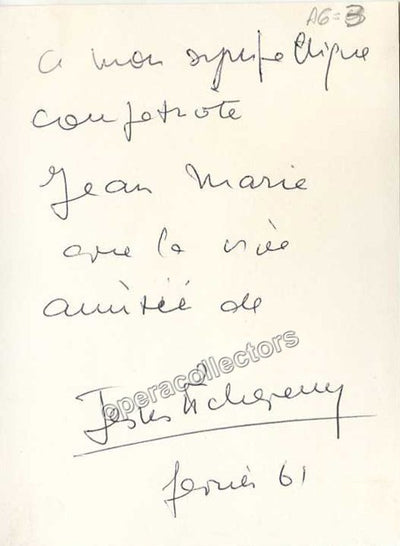 AG=3
a mon sympathique
compatriote
Jean Marie
avec la vive
amitié de
operacollectors
Jesus Etcheverry
février 61